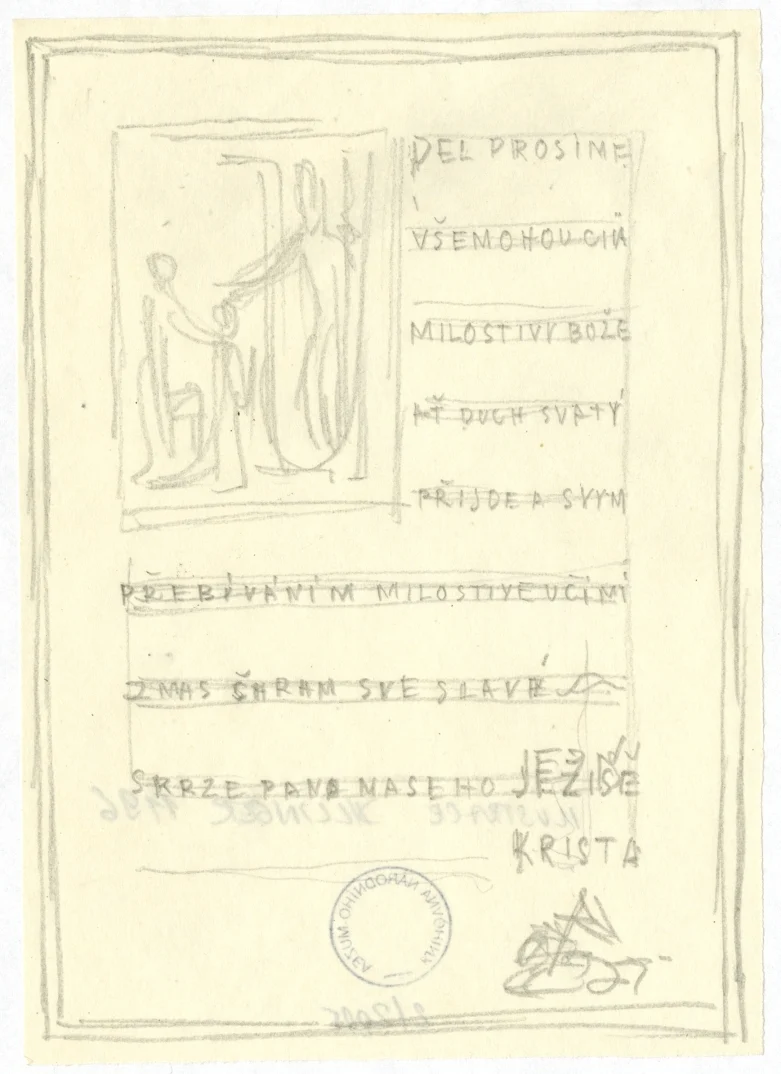 DEL PROSIME
VŠEMOHOUCIM
MILOSTIVY BOŽE
AŤ DUCH SVATÝ
PŘIJDE A SVYM
PŘEBÍVÁNÍM MILOSTIVE UČÍNI
Z NAS CHRAM SVE SLAVY
SKRZE PANA NASEHO JEŽIŠE
KRISTA
ILUSTRACE 1996
KNIHOVNA NÁRODNÍHO MUZEA
2/2005